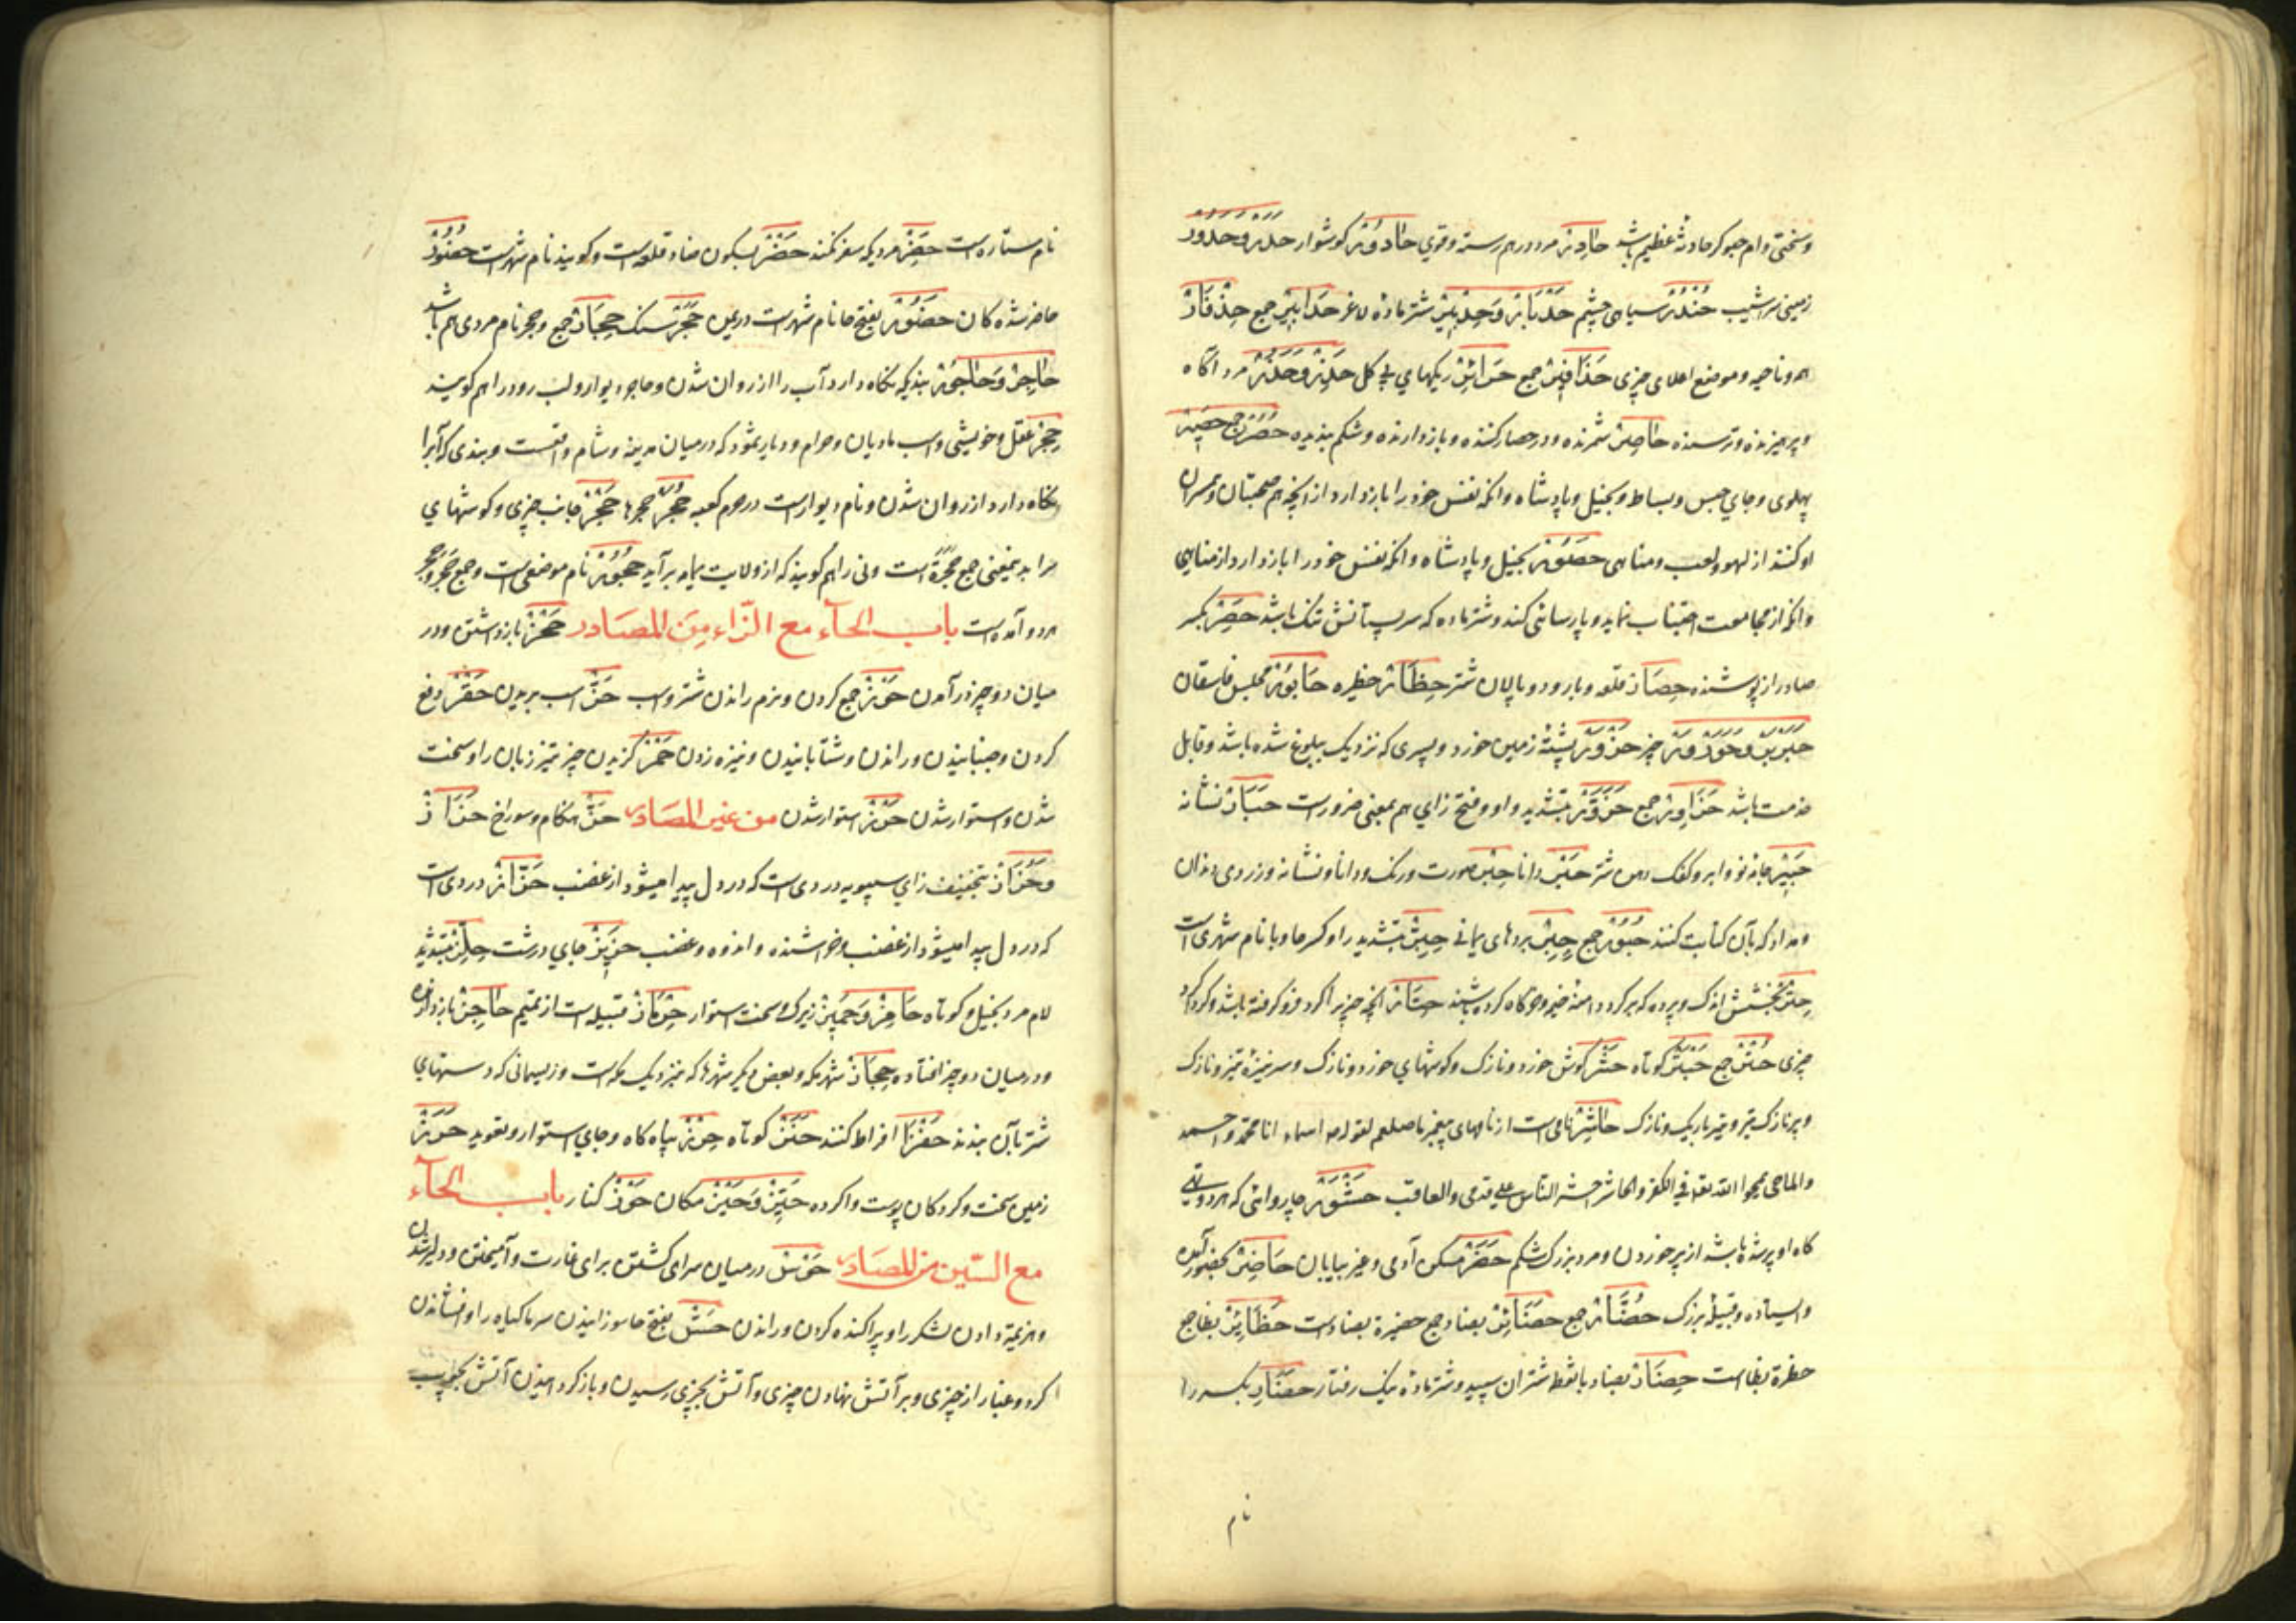 وسختی دام جو کر حادثهٔ عظیم باشد حادر مرد درهم رسته و قوی حادور گوشوار حدر و حدور
زمینی سراشیب حندر سیاهی چشم حدبار و حدبیر شتر مادهٔ لاغر حدابیر جمع
همه و ناحیه و موضع اعلای چیزی جمع ریگهای بی گل حذر و حذر مرد آگاه
و پرهیزنده و ترسنده حاصر شمرنده و در حصار کننده و بازدارنده و شکم بنده حصر جمع حصیر
پهلوی و جای حبس و بساط و بخیل و پادشاه و آنکه نفس خود را بازدارد از آنچه هم صحبتان و همسران
او کنند از لهو و لعب و مناهی حصور بخیل و پادشاه و آنکه نفس خود را بازدارد از مناهی
و آنکه از مجامعت اجتناب نماید و پارسائی کند و شتر ماده که سر پستانش تنگ باشد حصر بکسر
صاد راز پوشنده حصار قلعه و بارو و پالان شتر حظار حظیره حابور مجلس فاسقان
چیز حزور پشتهٔ زمین خرد و پسری که نزدیک ببلوغ شده باشد و قابل
خدمت باشد حزاور جمع حزور بتشدید واو و فتح زای هم بمعنی حزور است حبار نشانه
حبیر جامه نو و ابر و کفک دهن شتر حبر دانا حبر صورت و رنگ و دانا و نشانه و زردی دندان
و مداد که بآن کتابت کنند حبور جمع حبر بردهای یمانی حبر بتشدید را و کسر حا و با نام شهری است
حتر بخشش اندک و پرده که بر گرد دامنه خیمه و خرگاه کرده باشند حتار آنچه چیزیرا گرد فرو گرفته باشد و گرداگرد
چیزی حتر جمع حبتر کوتاه حشر گوش خرد و نازک و گوشهای خرد و نازک و سر نیزهٔ تیز و نازک
و پر نازک تیر و تیر باریک و نازک حاشر نامی است از نامهای پیغمبر ما صلعم لقوله اسماء انا محمد و احمد
والماحی یمحوا الله بی الکفر والحاشر احشر الناس علی قدمی والعاقب حشور چاروائی که هر دو پهلوی
گاه او پر شده باشد از پر خوردن و مرد بزرگ شکم حضر مسکن آدمی و غیر بیابان حاضر بحضور آینده
و ایستاده و قبیلهٔ بزرگ حضار جمع حضائر بضاد جمع حضیرة بضاد است حظائر بظا جمع
حظیرة بظا است حضار بضاد با نقطه شتران سپید و شتر مادهٔ نیک رفتار حضار بکسر را
نام
نام ستاره است حضر مردیکه سفر نکند حضر بسکون ضاد قلعه است و گویند نام شهر است حضور
حاضر شدگان حضور بفتح حا نام شهر است در یمن حجر سنگ حجار جمع و حجر نام مردی هم باشد
حاجر و حاجور بندیکه نگاه دارد آب را از روان شدن و حاجر دیوار و لب رود را هم گویند
حجر عقل و خویشی و اسب مادیان و حرام و دیار ثمود که در میان مدینه و شام واقعست و بندی که آبرا
نگاه دارد از روان شدن و نام دیوار است در حرم کعبه حجر حجرها حجر جانب چیزی و گوشهای
سرا بدینمعنی جمع حجرة است و نی را هم گویند که از ولایت یمامه برآید حجور نام موضعی است و جمع حجر و حجر
هر دو آمده است باب الحآء مع الزّاء من المصادر حجز بازداشتن و در
میان دو چیز درآمدن حوز جمع کردن و نرم راندن شتر و اسب حز اسب بریدن حفز دفع
کردن و جنبانیدن و راندن و شتابانیدن و نیزه زدن حمز گزیدن چیز تیز زبان را و سخت
شدن و استوار شدن استوار شدن من غیر المصادر حز هنگام و سوراخ حزاز
و حزاز بتخفیف زای سپوسه و دردی است که در دل پیدا میشود از غضب حزاز دردی است
که در دل پیدا میشود از غضب و خراشنده و اندوه و غضب حزیز جای درشت حلز بتشدید
لام مرد بخیل و کوتاه حامز و حمیز زیرک و سخت استوار حماز قبیله است از تمیم حاجز بازدارنده
و در میان دو چیز افتاده حجاز شهر مکه و بعض دیگر شهرها که نزدیک مکه است و ریسمانی که دستهای
شتر بآن بندند افراط کنند کوتاه حرز پناه گاه و جای استوار و تعویذ
زمین سخت و گردکان پوست وا کرده حیز و حیز مکان حوز کنار باب الحآء
مع السّین من المصادر حوس در میان سرای گشتن برای غارت و آمیختن و دلیر شدن
و هزیمة دادن لشکر را و پراکنده کردن و راندن حس بفتح حا سوزانیدن سرما گیاه را و افشاندن
گرد و غبار از چیزی و بر آتش نهادن چیزی و آتش بچیزی رسیدن و باز گردانیدن آتش بچوب